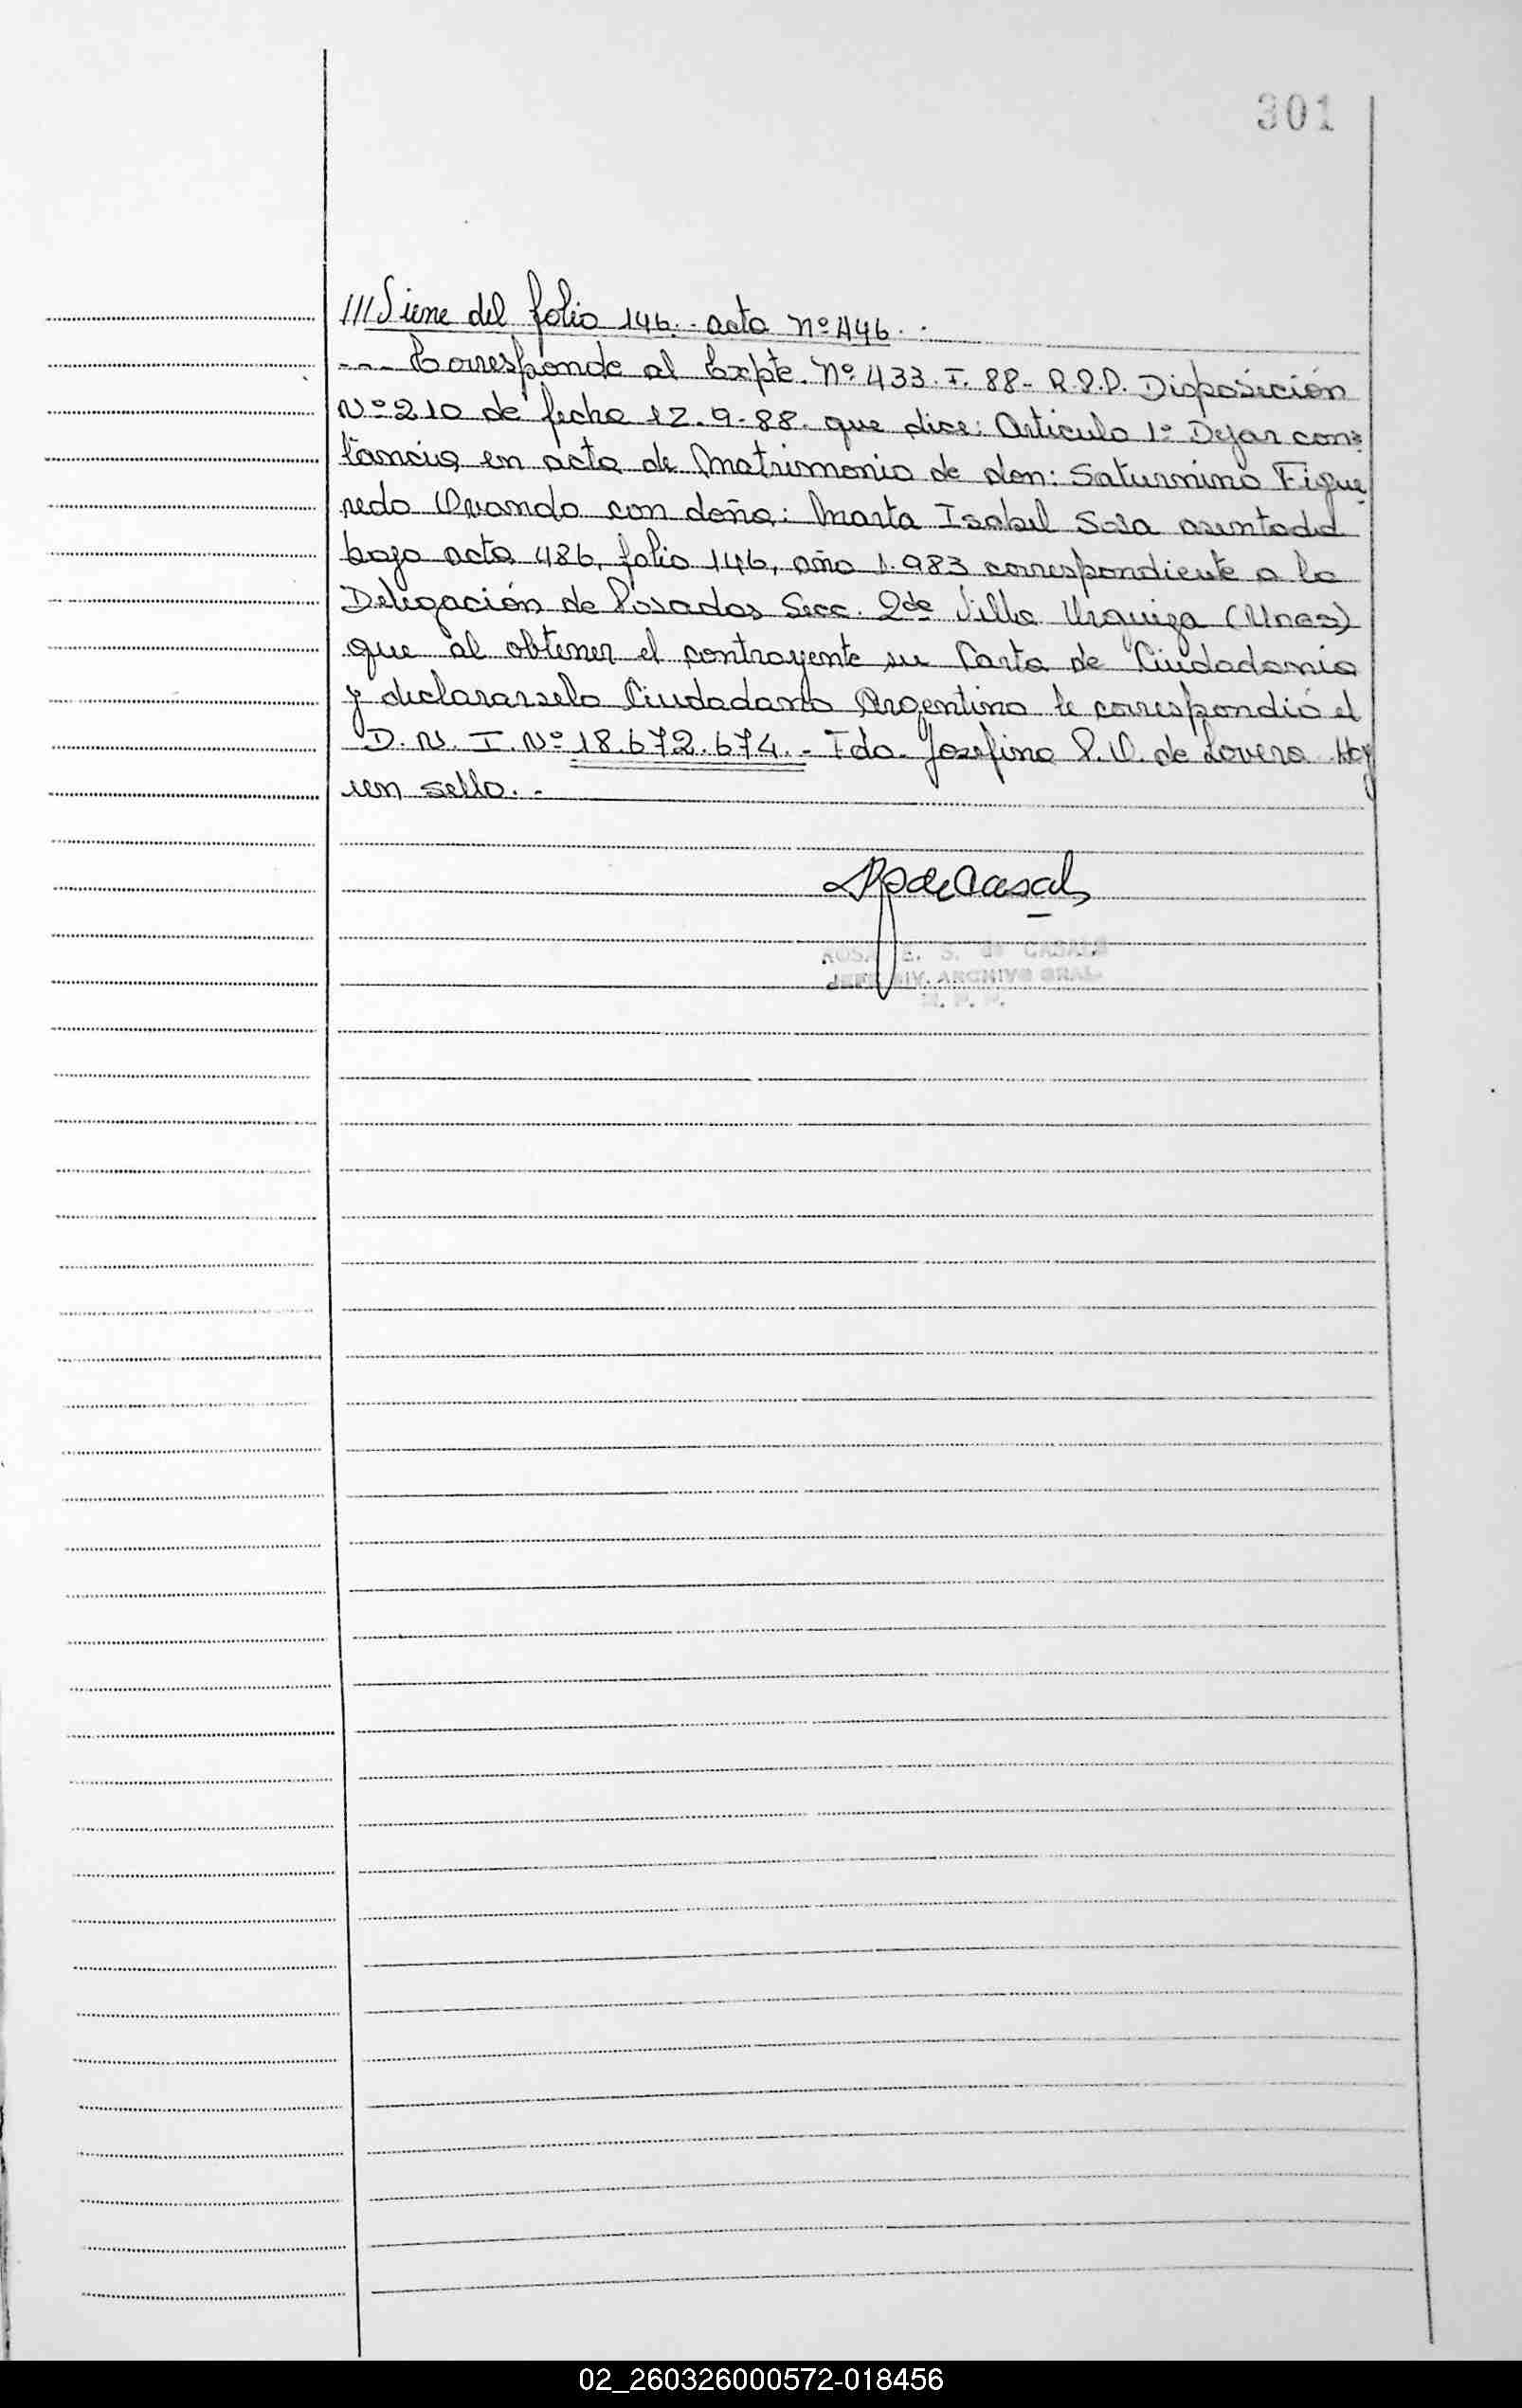 301
///Viene del folio 146.- acta Nº 446.-
--- Corresponde al Expte. Nº 433. F. 88- R.P.P. Disposición
Nº 210 de fecha 12.9.88. que dice: Artículo 1º Dejar cons-
tancia en acta de Matrimonio de don: Saturnino Figue
redo Ovando con doña: Marta Isabel Sosa asentada
bajo acta 486, folio 146, año 1.983 correspondiente a la
Delegación de Posadas Secc. 2da Villa Urquiza (Mnes)
que al obtener el contrayente su Carta de Ciudadania
y declararselo Ciudadano Argentino le correspondió el
D. N. I. Nº 18.672.674.- Fdo. Josefina P. V. de Lovera. Hay
un sello.-
ROSA E. S. de CASALS
JEFE DIV. ARCHIVO GRAL.
R. P. P.
02_260326000572-018456